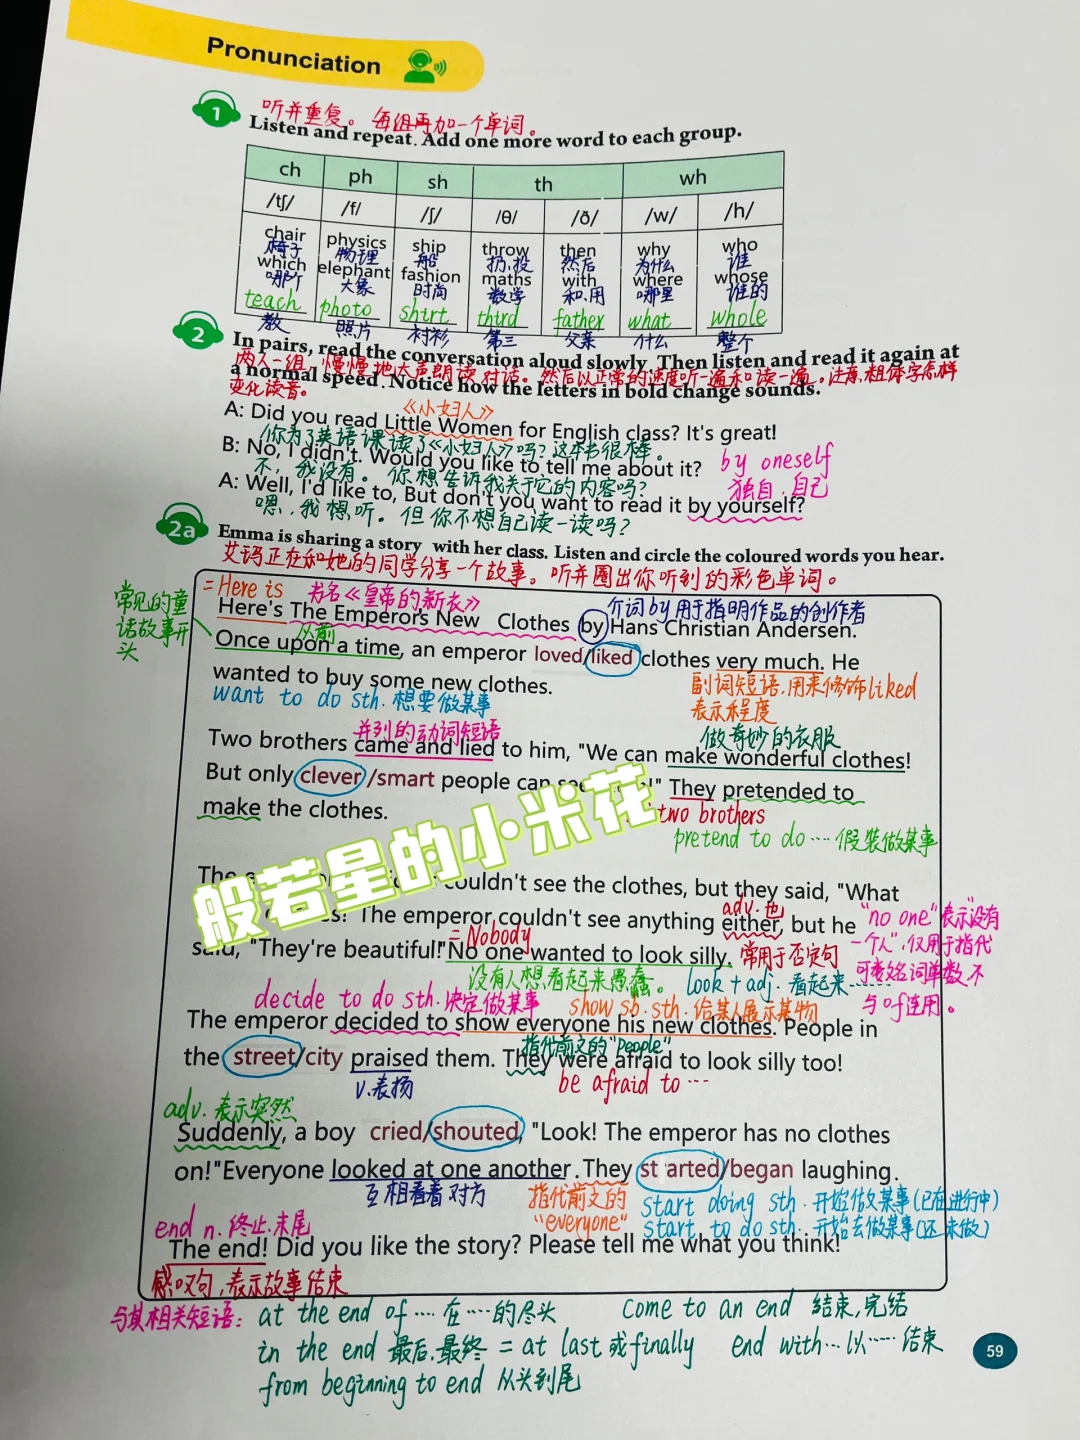 Pronunciation
1
听并重复。每组再加一个单词。
Listen and repeat. Add one more word to each group.
ch ph sh th wh
/tʃ/ /f/ /ʃ/ /θ/ /ð/ /w/ /h/
chair physics ship throw then why who
椅子 物理 船 扔,投 然后 为什么 谁
which elephant fashion maths with where whose
哪个 大象 时尚 数学 和,用 哪里 谁的
teach photo shirt third father what whole
教 照片 衬衫 第三 父亲 什么 整个
2
In pairs, read the conversation aloud slowly. Then listen and read it again at
两人一组,慢慢地大声朗读对话。然后以正常的速度听一遍和读一遍。注意粗体字怎样
a normal speed. Notice how the letters in bold change sounds.
变化读音。
《小妇人》
A: Did you read Little Women for English class? It's great!
你为了英语课读了《小妇人》吗?这本书很棒。
B: No, I didn't. Would you like to tell me about it?
by oneself
不,我没有。你想告诉我关于它的内容吗?
独自,自己
A: Well, I'd like to, But don't you want to read it by yourself?
嗯,我想听。但你不想自己读一读吗?
2a
Emma is sharing a story with her class. Listen and circle the coloured words you hear.
艾玛正在和她的同学分享一个故事。听并圈出你听到的彩色单词。
常见的童
话故事开
头
= Here is 书名《皇帝的新衣》 介词by用于指明作品的创作者
Here's The Emperor's New Clothes by Hans Christian Andersen.
从前
Once upon a time, an emperor loved/liked clothes very much. He
wanted to buy some new clothes.
副词短语,用来修饰liked
表示程度
want to do sth. 想要做某事
并列的动词短语 做奇妙的衣服
Two brothers came and lied to him, "We can make wonderful clothes!
But only clever /smart people can see " They pretended to
two brothers
make the clothes.
pretend to do ···· 假装做某事
般若星的小米花
The couldn't see the clothes, but they said, "What
adv. 也
The emperor couldn't see anything either, but he
"no one"表示"没有
一个人",仅用于指代
可数名词单数,不
与of连用。
= Nobody
said, "They're beautiful!" No one wanted to look silly. 常用于否定句
没有人想看起来愚蠢。 look + adj. 看起来······
decide to do sth. 决定做某事 show sb. sth. 给某人展示某物
The emperor decided to show everyone his new clothes. People in
指代前文的"people"
the street/city praised them. They were afraid to look silly too!
v.表扬 be afraid to ···
adv. 表示突然
Suddenly, a boy cried/shouted, "Look! The emperor has no clothes
on!" Everyone looked at one another. They started/began laughing.
互相看着对方
指代前文的
"everyone"
start doing sth. 开始做某事(已在进行中)
start to do sth. 开始去做某事(还未做)
end n. 终止.末尾
The end! Did you like the story? Please tell me what you think!
感叹句,表示故事结束
与其相关短语: at the end of ···· 在 ···· 的尽头 come to an end 结束,完结
in the end 最后,最终 = at last 或 finally end with ··· 以 ···· 结束
from beginning to end 从头到尾
59